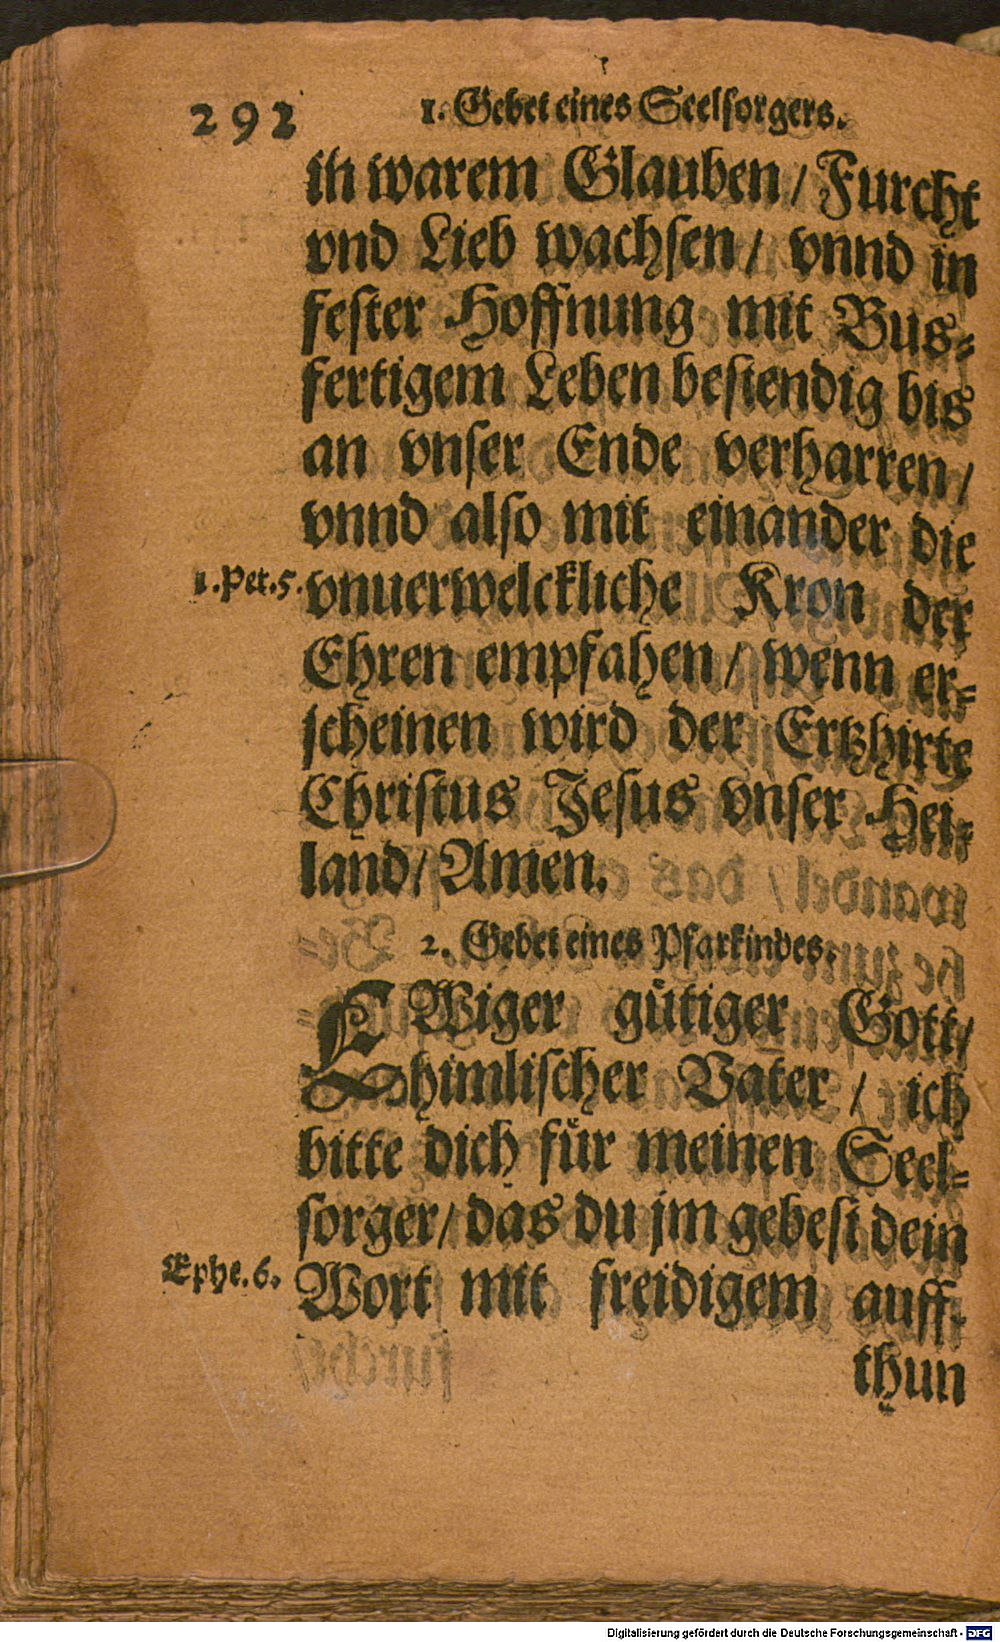 292 1. Gebet eines Seelsorgers.
in warem Glauben / Furcht
vnd Lieb wachsen / vnnd in
fester Hoffnung mit Bus-
fertigem Leben bestendig bis
an vnser Ende verharren /
vnnd also mit einander die
1. Pet. 5. vnuerwelckliche Kron der
Ehren empfahen / wenn er-
scheinen wird der Ertzhirte
Christus Jesus vnser Hei-
land / Amen.
2. Gebet eines Pfarkindes.
EWiger gütiger Gott /
himlischer Vater / ich
bitte dich für meinen Seel-
sorger / das du jm gebest dein
Ephe. 6. Wort mit freidigem auff-
thun
Digitalisierung gefördert durch die Deutsche Forschungsgemeinschaft - DFG